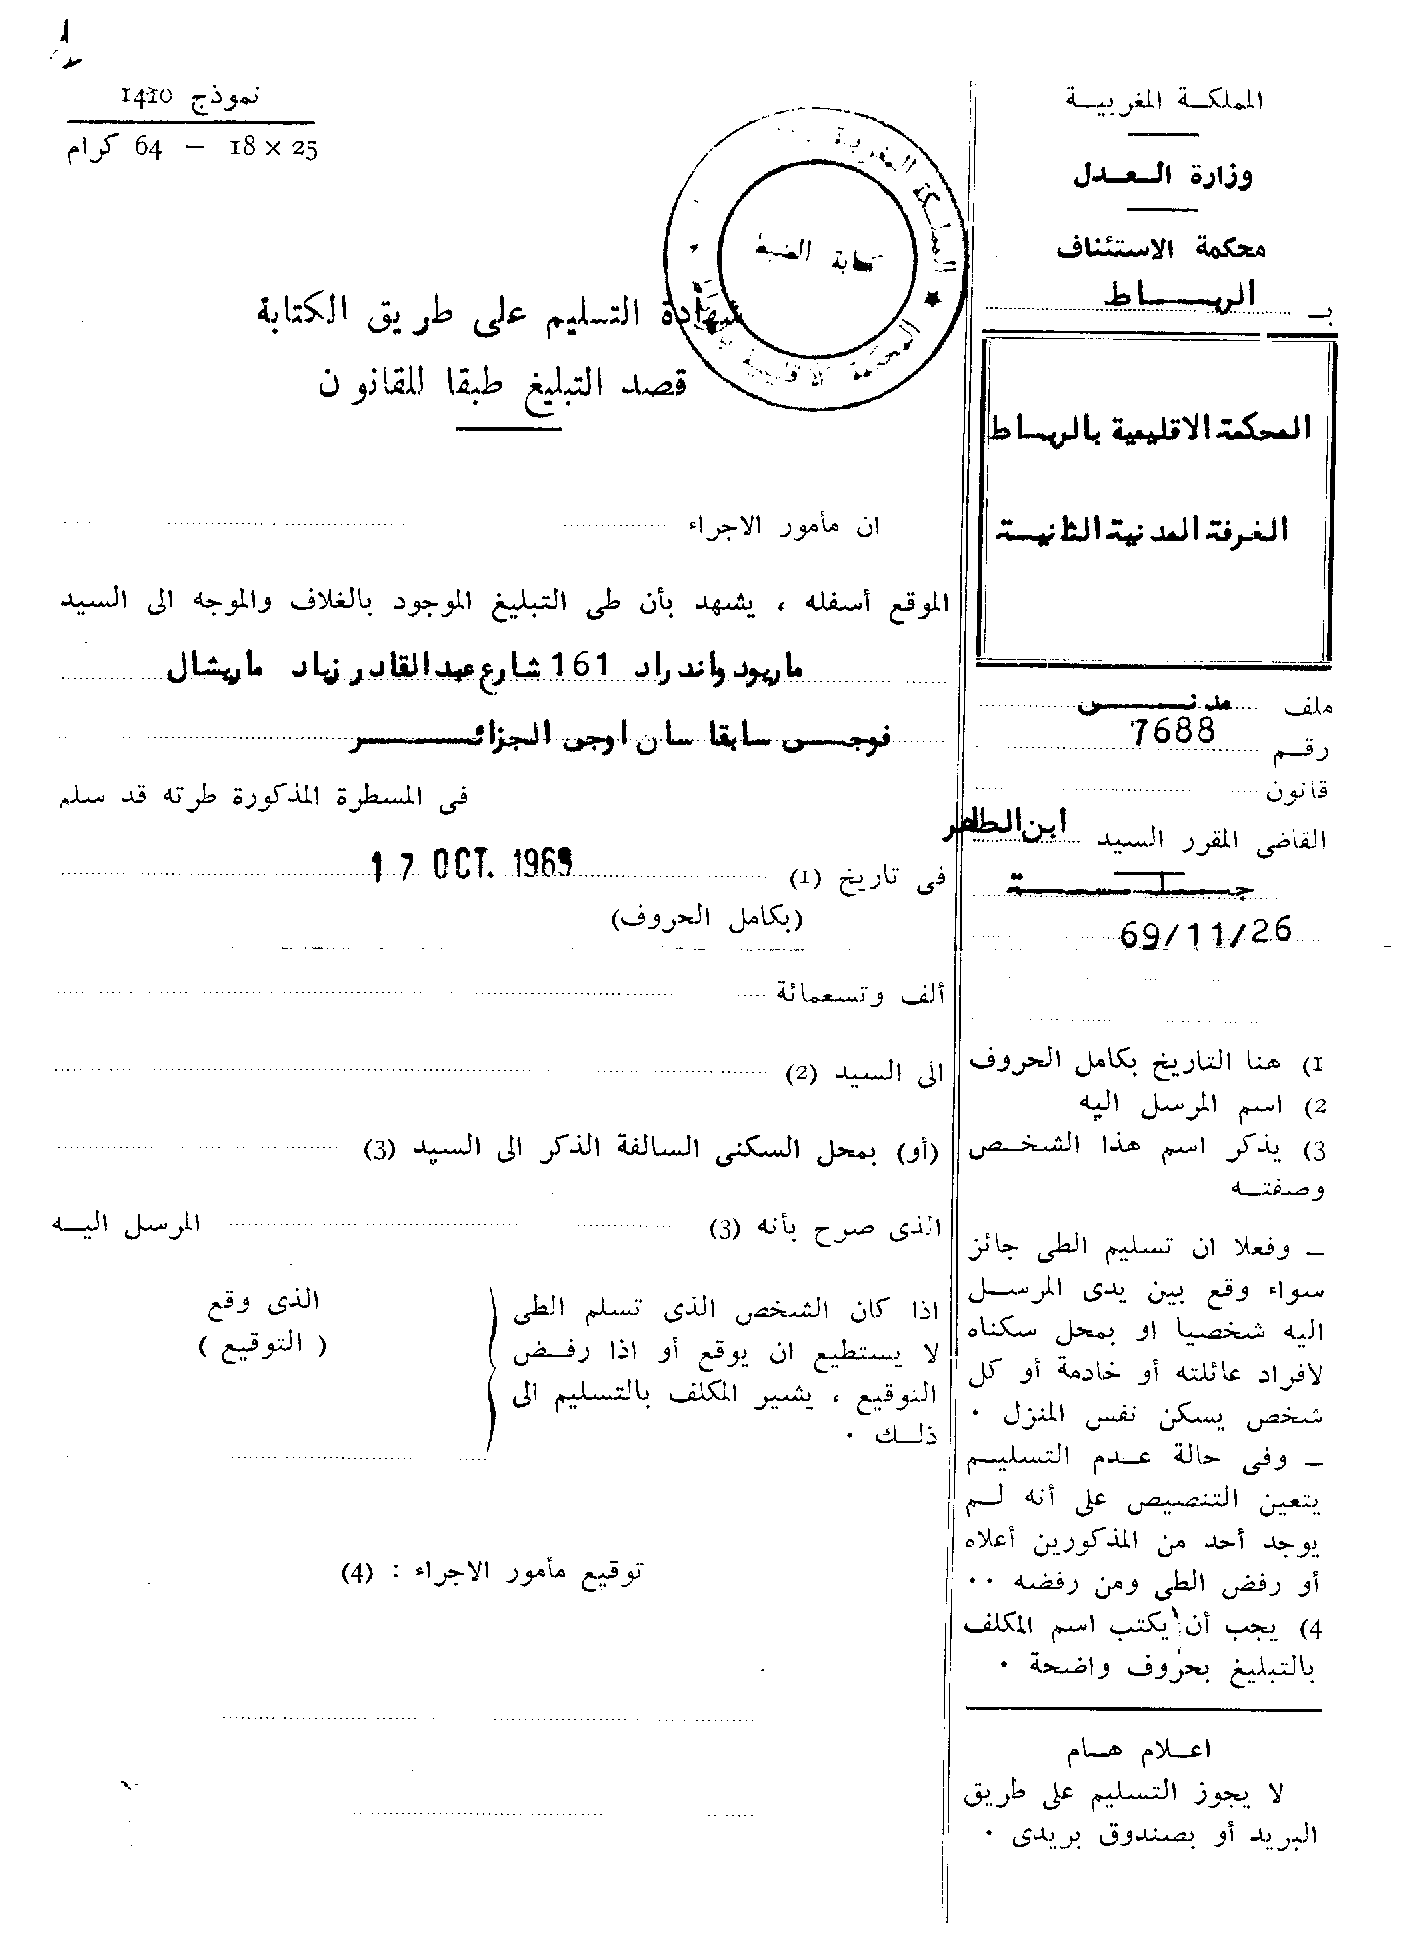 نموذج 1410
18 × 25 — 64 كرام
المملكة المغربية
وزارة العدل
محكمة الاستئناف
بـ الرباط
المحكمة الاقليمية بالرباط
الغرفة المدنية الثانية
ملف مدني
رقم 7688
قانون
القاضى المقرر السيد ابن الطاهر
جلسة
69/11/26
1) هنا التاريخ بكامل الحروف
2) اسم المرسل اليه
3) يذكر اسم هذا الشخص
وصفته
– وفعلا ان تسليم الطى جائز
سواء وقع بين يدى المرسل
اليه شخصيا او بمحل سكناه
لافراد عائلته أو خادمة أو كل
شخص يسكن نفس المنزل ٠
– وفى حالة عدم التسليم
يتعين التنصيص على أنه لم
يوجد أحد من المذكورين أعلاه
أو رفض الطى ومن رفضه ٠٠
4) يجب أن يكتب اسم المكلف
بالتبليغ بحروف واضحة ٠
اعلام هام
لا يجوز التسليم على طريق
البريد أو بصندوق بريدى ٠
المملكة المغربية
المحكمة الاقليمية
كتابة الضبط
شهادة التسليم على طريق الكتابة
قصد التبليغ طبقا للقانون
ان مأمور الاجراء
الموقع أسفله ، يشهد بأن طى التبليغ الموجود بالغلاف والموجه الى السيد
ماريود واندراد 161 شارع عبد القادر زياد ماريشال
فوجى سابقا سان اوجى الجزائر
فى المسطرة المذكورة طرته قد سلم
فى تاريخ (1) 17 OCT. 1969
(بكامل الحروف)
ألف وتسعمائة
الى السيد (2)
(أو) بمحل السكنى السالفة الذكر الى السيد (3)
الذى صرح بأنه (3) المرسل اليه
اذا كان الشخص الذى تسلم الطى
لا يستطيع ان يوقع أو اذا رفض
التوقيع ، يشير المكلف بالتسليم الى
ذلك ٠
الذى وقع
( التوقيع )
توقيع مأمور الاجراء : (4)